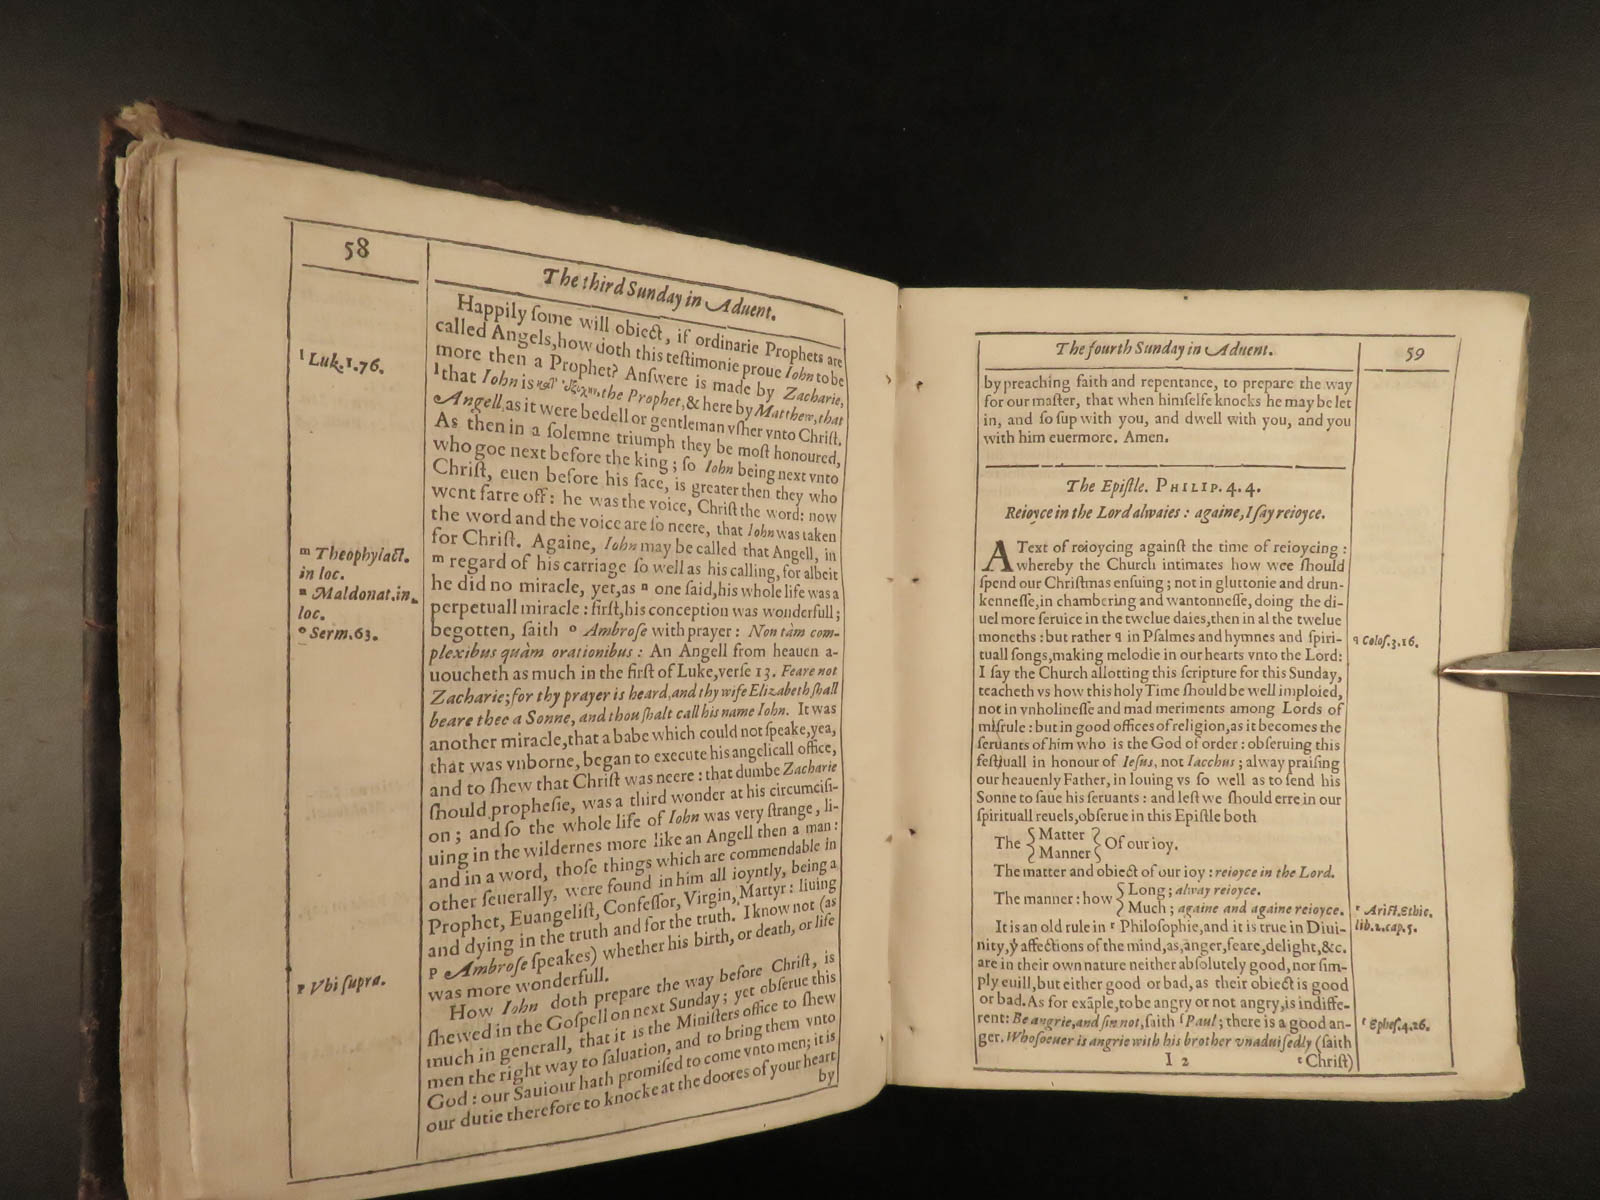 58
The third Sunday in Aduent.
Happily ſome will obiect, if ordinarie Prophets are
called Angels, how doth this teſtimonie proue Iohn to be
more then a Prophet? Anſwere is made by Zacharie,
l that Iohn is the Prophet, & here by Matthew, that
Angell, as it were bedell or gentleman vſher vnto Chriſt.
As then in a ſolemne triumph they be moſt honoured,
who goe next before the king; ſo Iohn being next vnto
Chriſt, euen before his face, is greater then they who
went farre off: he was the voice, Chriſt the word: now
the word and the voice are ſo neere, that Iohn was taken
for Chriſt. Againe, Iohn may be called that Angell, in
m regard of his carriage ſo well as his calling, for albeit
he did no miracle, yet, as n one ſaid, his whole life was a
perpetuall miracle: firſt, his conception was wonderfull;
begotten, ſaith o Ambroſe with prayer: Non tàm com-
plexibus quàm orationibus: An Angell from heauen a-
uoucheth as much in the firſt of Luke, verſe 13. Feare not
Zacharie; for thy prayer is heard, and thy wife Elizabeth ſhall
beare thee a Sonne, and thou ſhalt call his name Iohn. It was
another miracle, that a babe which could not ſpeake, yea,
that was vnborne, began to execute his angelicall office,
and to ſhew that Chriſt was neere: that dumbe Zacharie
ſhould propheſie, was a third wonder at his circumciſi-
on; and ſo the whole life of Iohn was very ſtrange, li-
uing in the wildernes more like an Angell then a man:
and in a word, thoſe things which are commendable in
other ſeuerally, were found in him all ioyntly, being a
Prophet, Euangeliſt, Confeſſor, Virgin, Martyr: liuing
and dying in the truth and for the truth. I know not (as
p Ambroſe ſpeakes) whether his birth, or death, or life
was more wonderfull.
How Iohn doth prepare the way before Chriſt, is
ſhewed in the Goſpell on next Sunday; yet obſerue this
much in generall, that it is the Miniſters office to ſhew
men the right way to ſaluation, and to bring them vnto
God: our Sauiour hath promiſed to come vnto men; it is
our dutie therefore to knocke at the doores of your heart
by
l Luk. 1. 76.
m Theophylact.
in loc.
n Maldonat. in
loc.
o Serm. 63.
p Vbi ſupra.
The fourth Sunday in Aduent.
59
by preaching faith and repentance, to prepare the way
for our maſter, that when himſelfe knocks he may be let
in, and ſo ſup with you, and dwell with you, and you
with him euermore. Amen.
The Epiſtle. PHILIP. 4. 4.
Reioyce in the Lord alwaies: againe, I ſay reioyce.
A Text of reioycing againſt the time of reioycing:
whereby the Church intimates how wee ſhould
ſpend our Chriſtmas enſuing; not in gluttonie and drun-
kenneſſe, in chambering and wantonneſſe, doing the di-
uel more ſeruice in the twelue daies, then in al the twelue
moneths: but rather q in Pſalmes and hymnes and ſpiri-
tuall ſongs, making melodie in our hearts vnto the Lord:
I ſay the Church allotting this ſcripture for this Sunday,
teacheth vs how this holy Time ſhould be well imploied,
not in vnholineſſe and mad meriments among Lords of
miſrule: but in good offices of religion, as it becomes the
ſeruants of him who is the God of order: obſeruing this
feſtiuall in honour of Ieſus, not Iacchus; alway praiſing
our heauenly Father, in louing vs ſo well as to ſend his
Sonne to ſaue his ſeruants: and leſt we ſhould erre in our
ſpirituall reuels, obſerue in this Epiſtle both
The { Matter } Of our ioy.
{ Manner }
The matter and obiect of our ioy: reioyce in the Lord.
The manner: how { Long; alway reioyce.
{ Much; againe and againe reioyce.
It is an old rule in r Philoſophie, and it is true in Diui-
nity, yͤ affections of the mind, as, anger, feare, delight, &c.
are in their own nature neither abſolutely good, nor ſim-
ply euill, but either good or bad, as their obiect is good
or bad. As for exāple, to be angry or not angry, is indiffe-
rent: Be angrie, and ſin not, ſaith ſ Paul; there is a good an-
ger. Whoſoeuer is angrie with his brother vnaduiſedly (ſaith
I 2
t Chriſt)
q Coloſ. 3. 16.
r Ariſt. Ethic.
lib. 2. cap. 5.
ſ Epheſ. 4. 26.